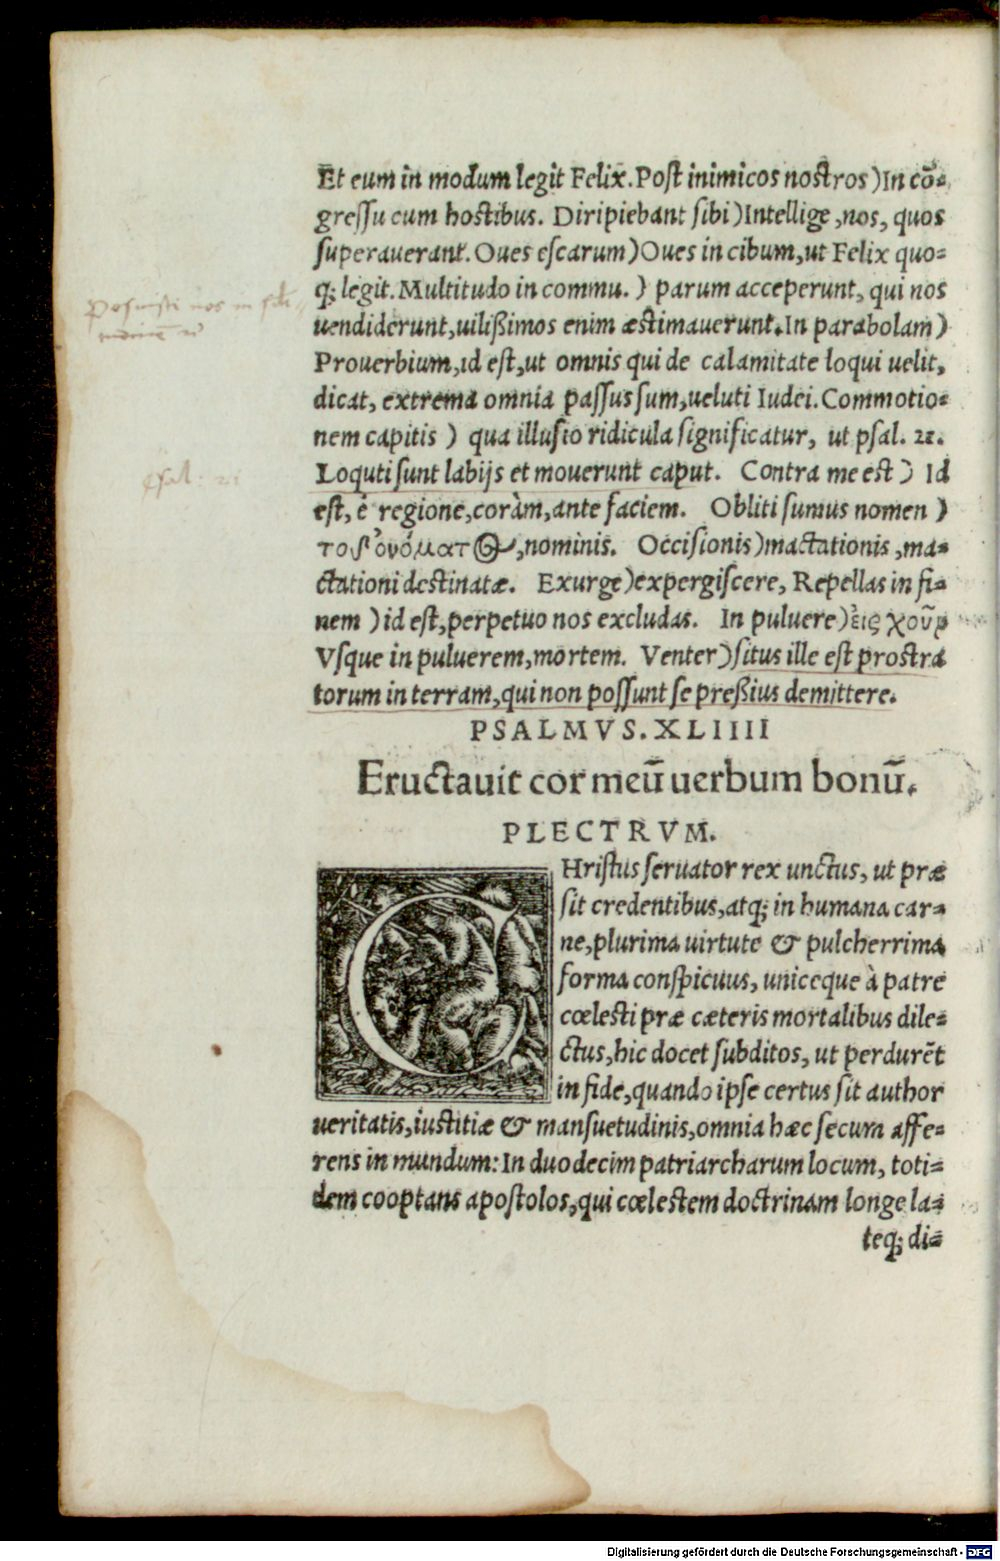 Et eum in modum legit Felix. Post inimicos nostros) In cō-
gressu cum hostibus. Diripiebant sibi) Intellige, nos, quos
superauerant. Oues escarum) Oues in cibum, ut Felix quo-
q; legit. Multitudo in commu.) parum acceperunt, qui nos
uendiderunt, uilißimos enim æstimauerunt. In parabolam)
Prouerbium, id est, ut omnis qui de calamitate loqui uelit,
dicat, extrema omnia passus sum, ueluti Iudei. Commotio-
nem capitis) qua illusio ridicula significatur, ut psal. 21.
Loquti sunt labijs et mouerunt caput. Contra me est) Id
est, è regione, coràm, ante faciem. Obliti sumus nomen)
τοῦ ὀνόματος, nominis. Occisionis) mactationis, ma-
ctationi destinatæ. Exurge) expergiscere, Repellas in fi-
nem) id est, perpetuo nos excludas. In puluere) εἰς χοῦν
Vsque in puluerem, mortem. Venter) situs ille est prostra
torum in terram, qui non possunt se preßius demittere.
PSALMVS. XLIIII
Eructauit cor meū uerbum bonū.
PLECTRVM.
CHristus seruator rex unctus, ut præ
sit credentibus, atq; in humana car-
ne, plurima uirtute & pulcherrima
forma conspicuus, uniceque à patre
cœlesti præ cæteris mortalibus dile-
ctus, hic docet subditos, ut perdurēt
in fide, quando ipse certus sit author
ueritatis, iustitiæ & mansuetudinis, omnia hæc secum affe-
rens in mundum: In duodecim patriarcharum locum, toti-
dem cooptans apostolos, qui cœlestem doctrinam longe la-
teq; di-
Posuisti nos in
psal: 21
Digitalisierung gefördert durch die Deutsche Forschungsgemeinschaft - DFG